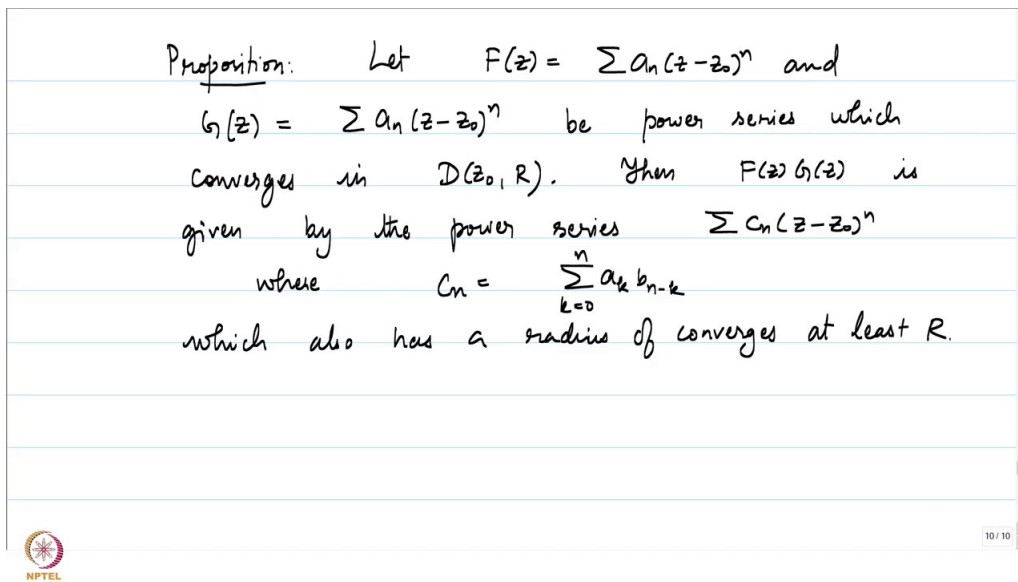 Proposition: Let F(z) = Σ an (z-z₀)ⁿ and
G(z) = Σ an (z-z₀)ⁿ be power series which
converges in D(z₀, R). Then F(z) G(z) is
given by the power series Σ cn (z-z₀)ⁿ
where cn = Σₖ₌₀ⁿ aₖ bₙ₋ₖ
which also has a radius of converges at least R.
10 / 10
NPTEL